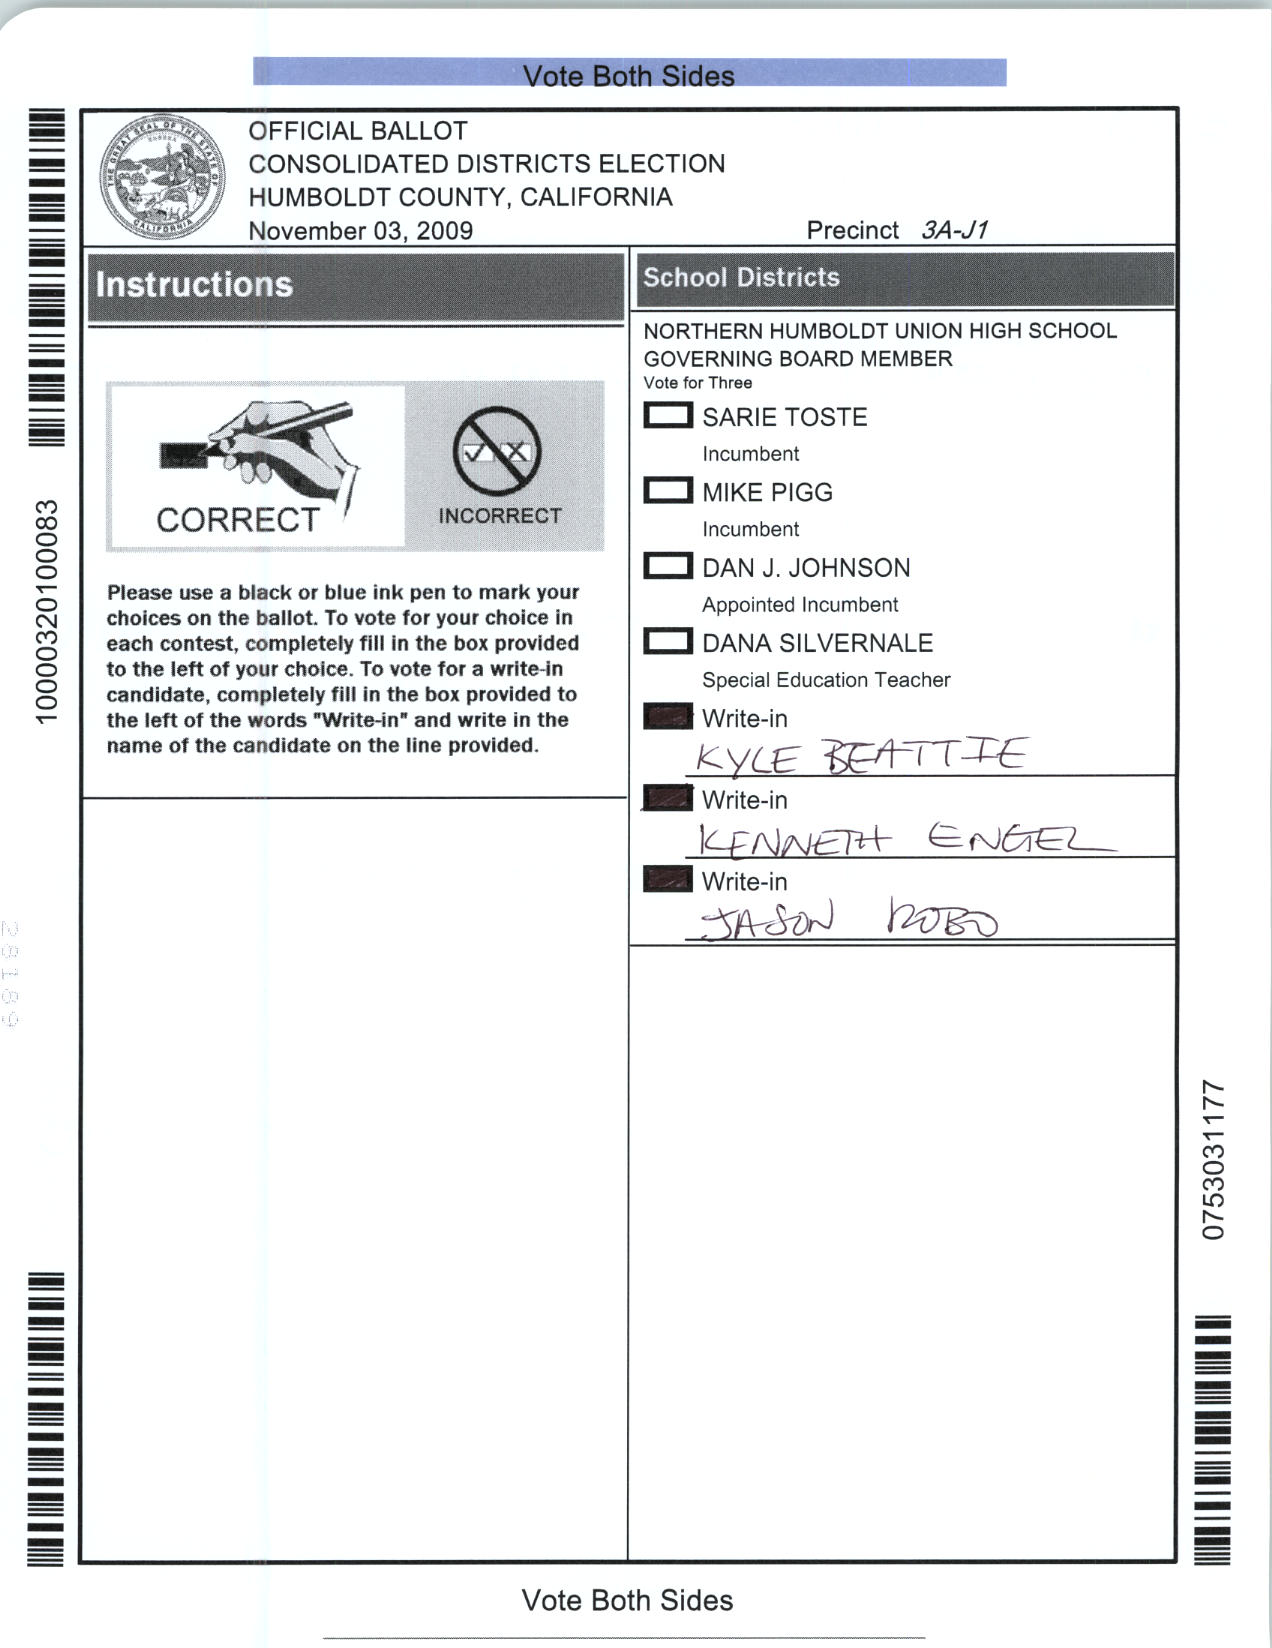 Vote Both Sides
OFFICIAL BALLOT
CONSOLIDATED DISTRICTS ELECTION
HUMBOLDT COUNTY, CALIFORNIA
November 03, 2009
Precinct 3A-J1
THE GREAT SEAL OF THE STATE OF CALIFORNIA
EUREKA
Instructions
CORRECT
INCORRECT
Please use a black or blue ink pen to mark your
choices on the ballot. To vote for your choice in
each contest, completely fill in the box provided
to the left of your choice. To vote for a write-in
candidate, completely fill in the box provided to
the left of the words "Write-in" and write in the
name of the candidate on the line provided.
School Districts
NORTHERN HUMBOLDT UNION HIGH SCHOOL
GOVERNING BOARD MEMBER
Vote for Three
SARIE TOSTE
Incumbent
MIKE PIGG
Incumbent
DAN J. JOHNSON
Appointed Incumbent
DANA SILVERNALE
Special Education Teacher
Write-in
KYLE BEATTIE
Write-in
KENNETH ENGEL
Write-in
JASON ROBO
10000320100083
0753031177
Vote Both Sides